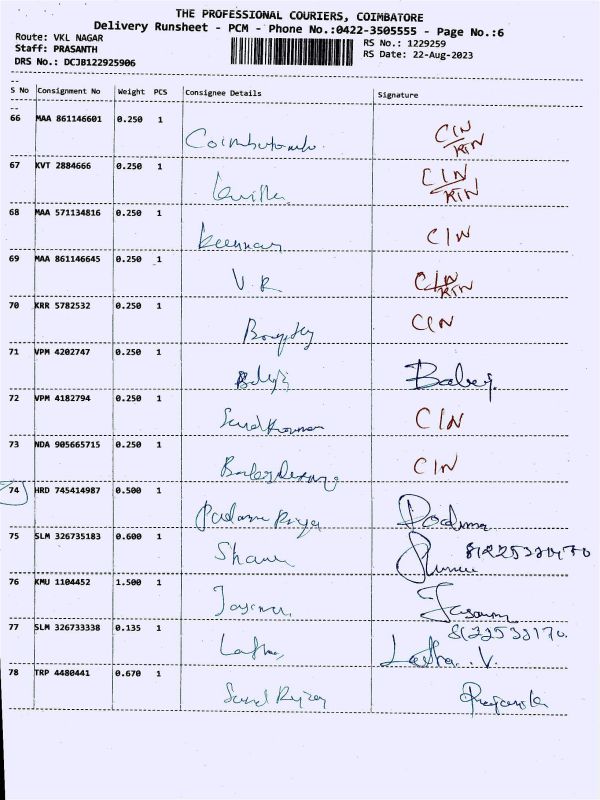 THE PROFESSIONAL COURIERS, COIMBATORE
Delivery Runsheet - PCM - Phone No.:0422-3505555 - Page No.:6
Route: VKL NAGAR
RS No.: 1229259
Staff: PRASANTH
RS Date: 22-Aug-2023
DRS No.: DCJB122925906
S No Consignment No Weight PCS Consignee Details Signature
66 MAA 861146601 0.250 1 CIN
RTN
67 KVT 2884666 0.250 1 CIN
RTN
68 MAA 571134816 0.250 1 CIN
69 MAA 861146645 0.250 1 V. R CIN
RTN
70 KRR 5782532 0.250 1 CIN
71 VPM 4202747 0.250 1 Babuj
72 VPM 4182794 0.250 1 CIN
73 NDA 905665715 0.250 1 CIN
74 HRD 745414987 0.500 1 Padma Priya Padma
75 SLM 326735183 0.600 1
76 KMU 1104452 1.500 1
77 SLM 326733338 0.135 1 Latha 8122532170
Latha. V.
78 TRP 4480441 0.670 1